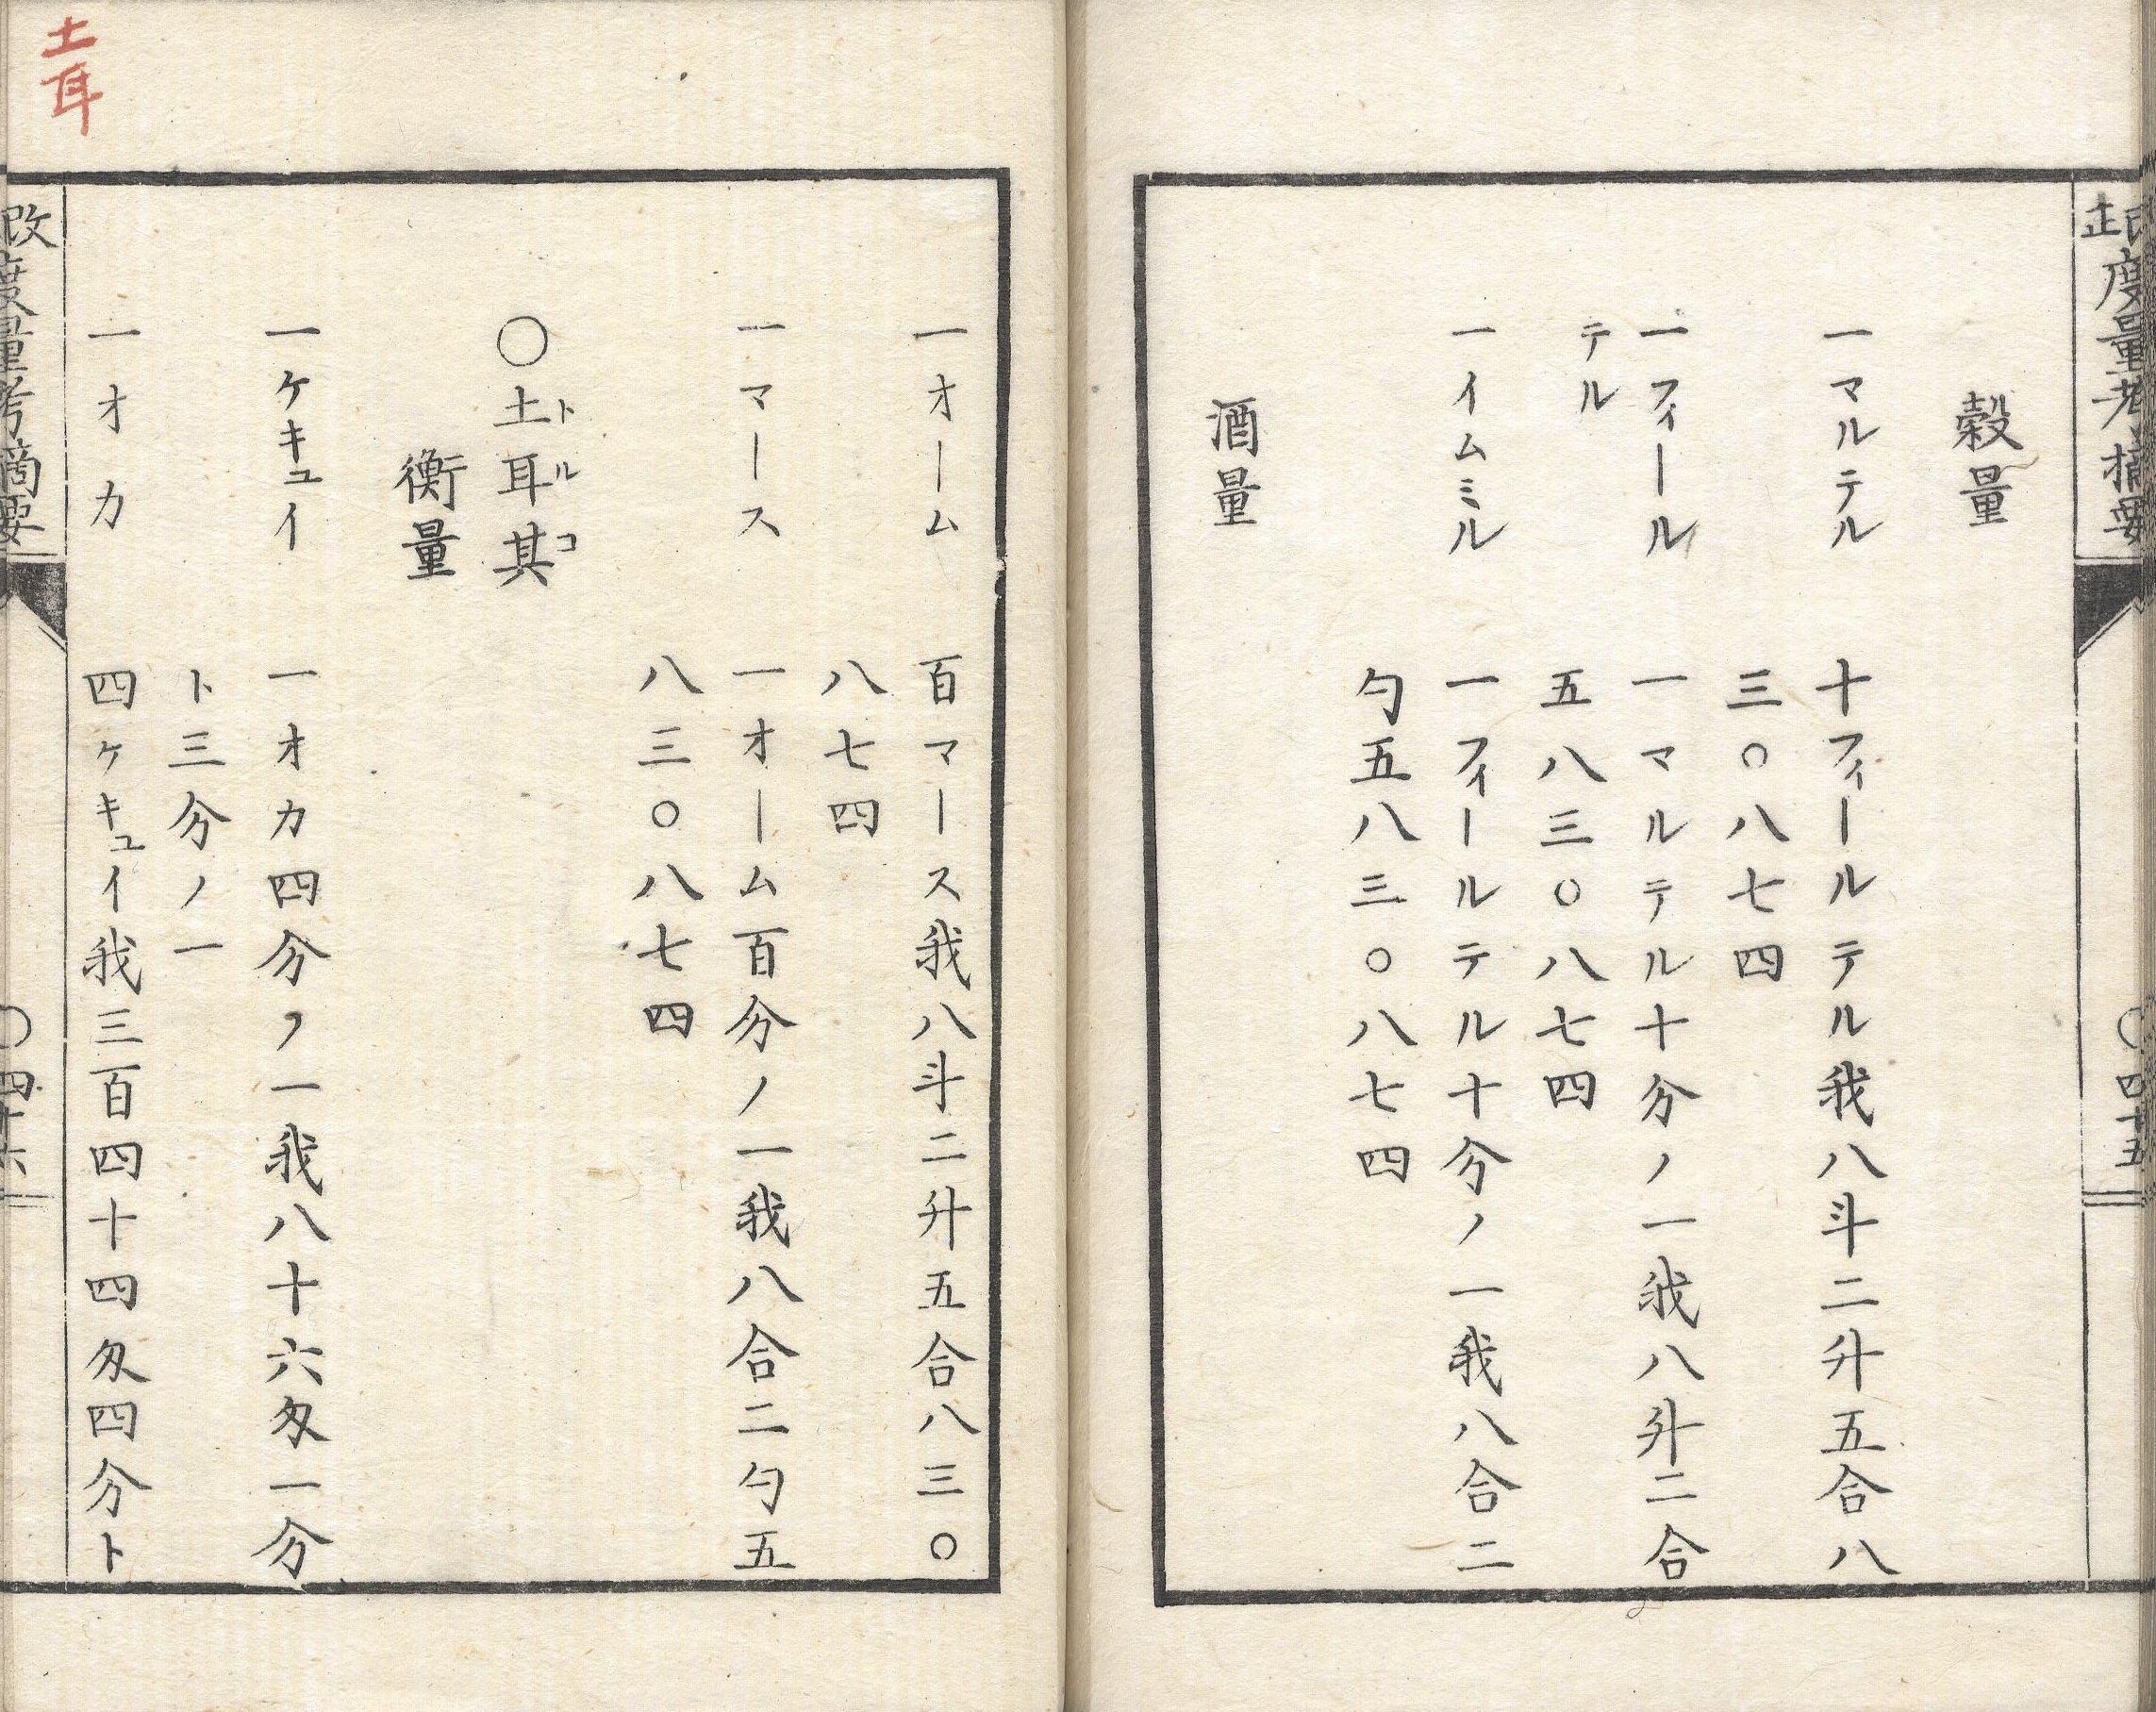 改正度量考摘要
〇四十五
穀量
一マルテル　十フィールテル我八斗二升五合八
三〇八七四
一フィール　一マルテル十分ノ一我八升二合
テル　五八三〇八七四
一イムミル　一フィールテル十分ノ一我八合二
勺五八三〇八七四
酒量
一オーム　百マース我八斗二升五合八三〇
八七四
一マース　一オーム百分ノ一我八合二勺五
八三〇八七四
〇土耳其
トルコ
衡量
一ケキュイ　一オカ四分ノ一我八十六匁一分
ト三分ノ一
一オカ　四ケキュイ我三百四十四匁四分ト
改度量考摘要
〇四十六
土耳